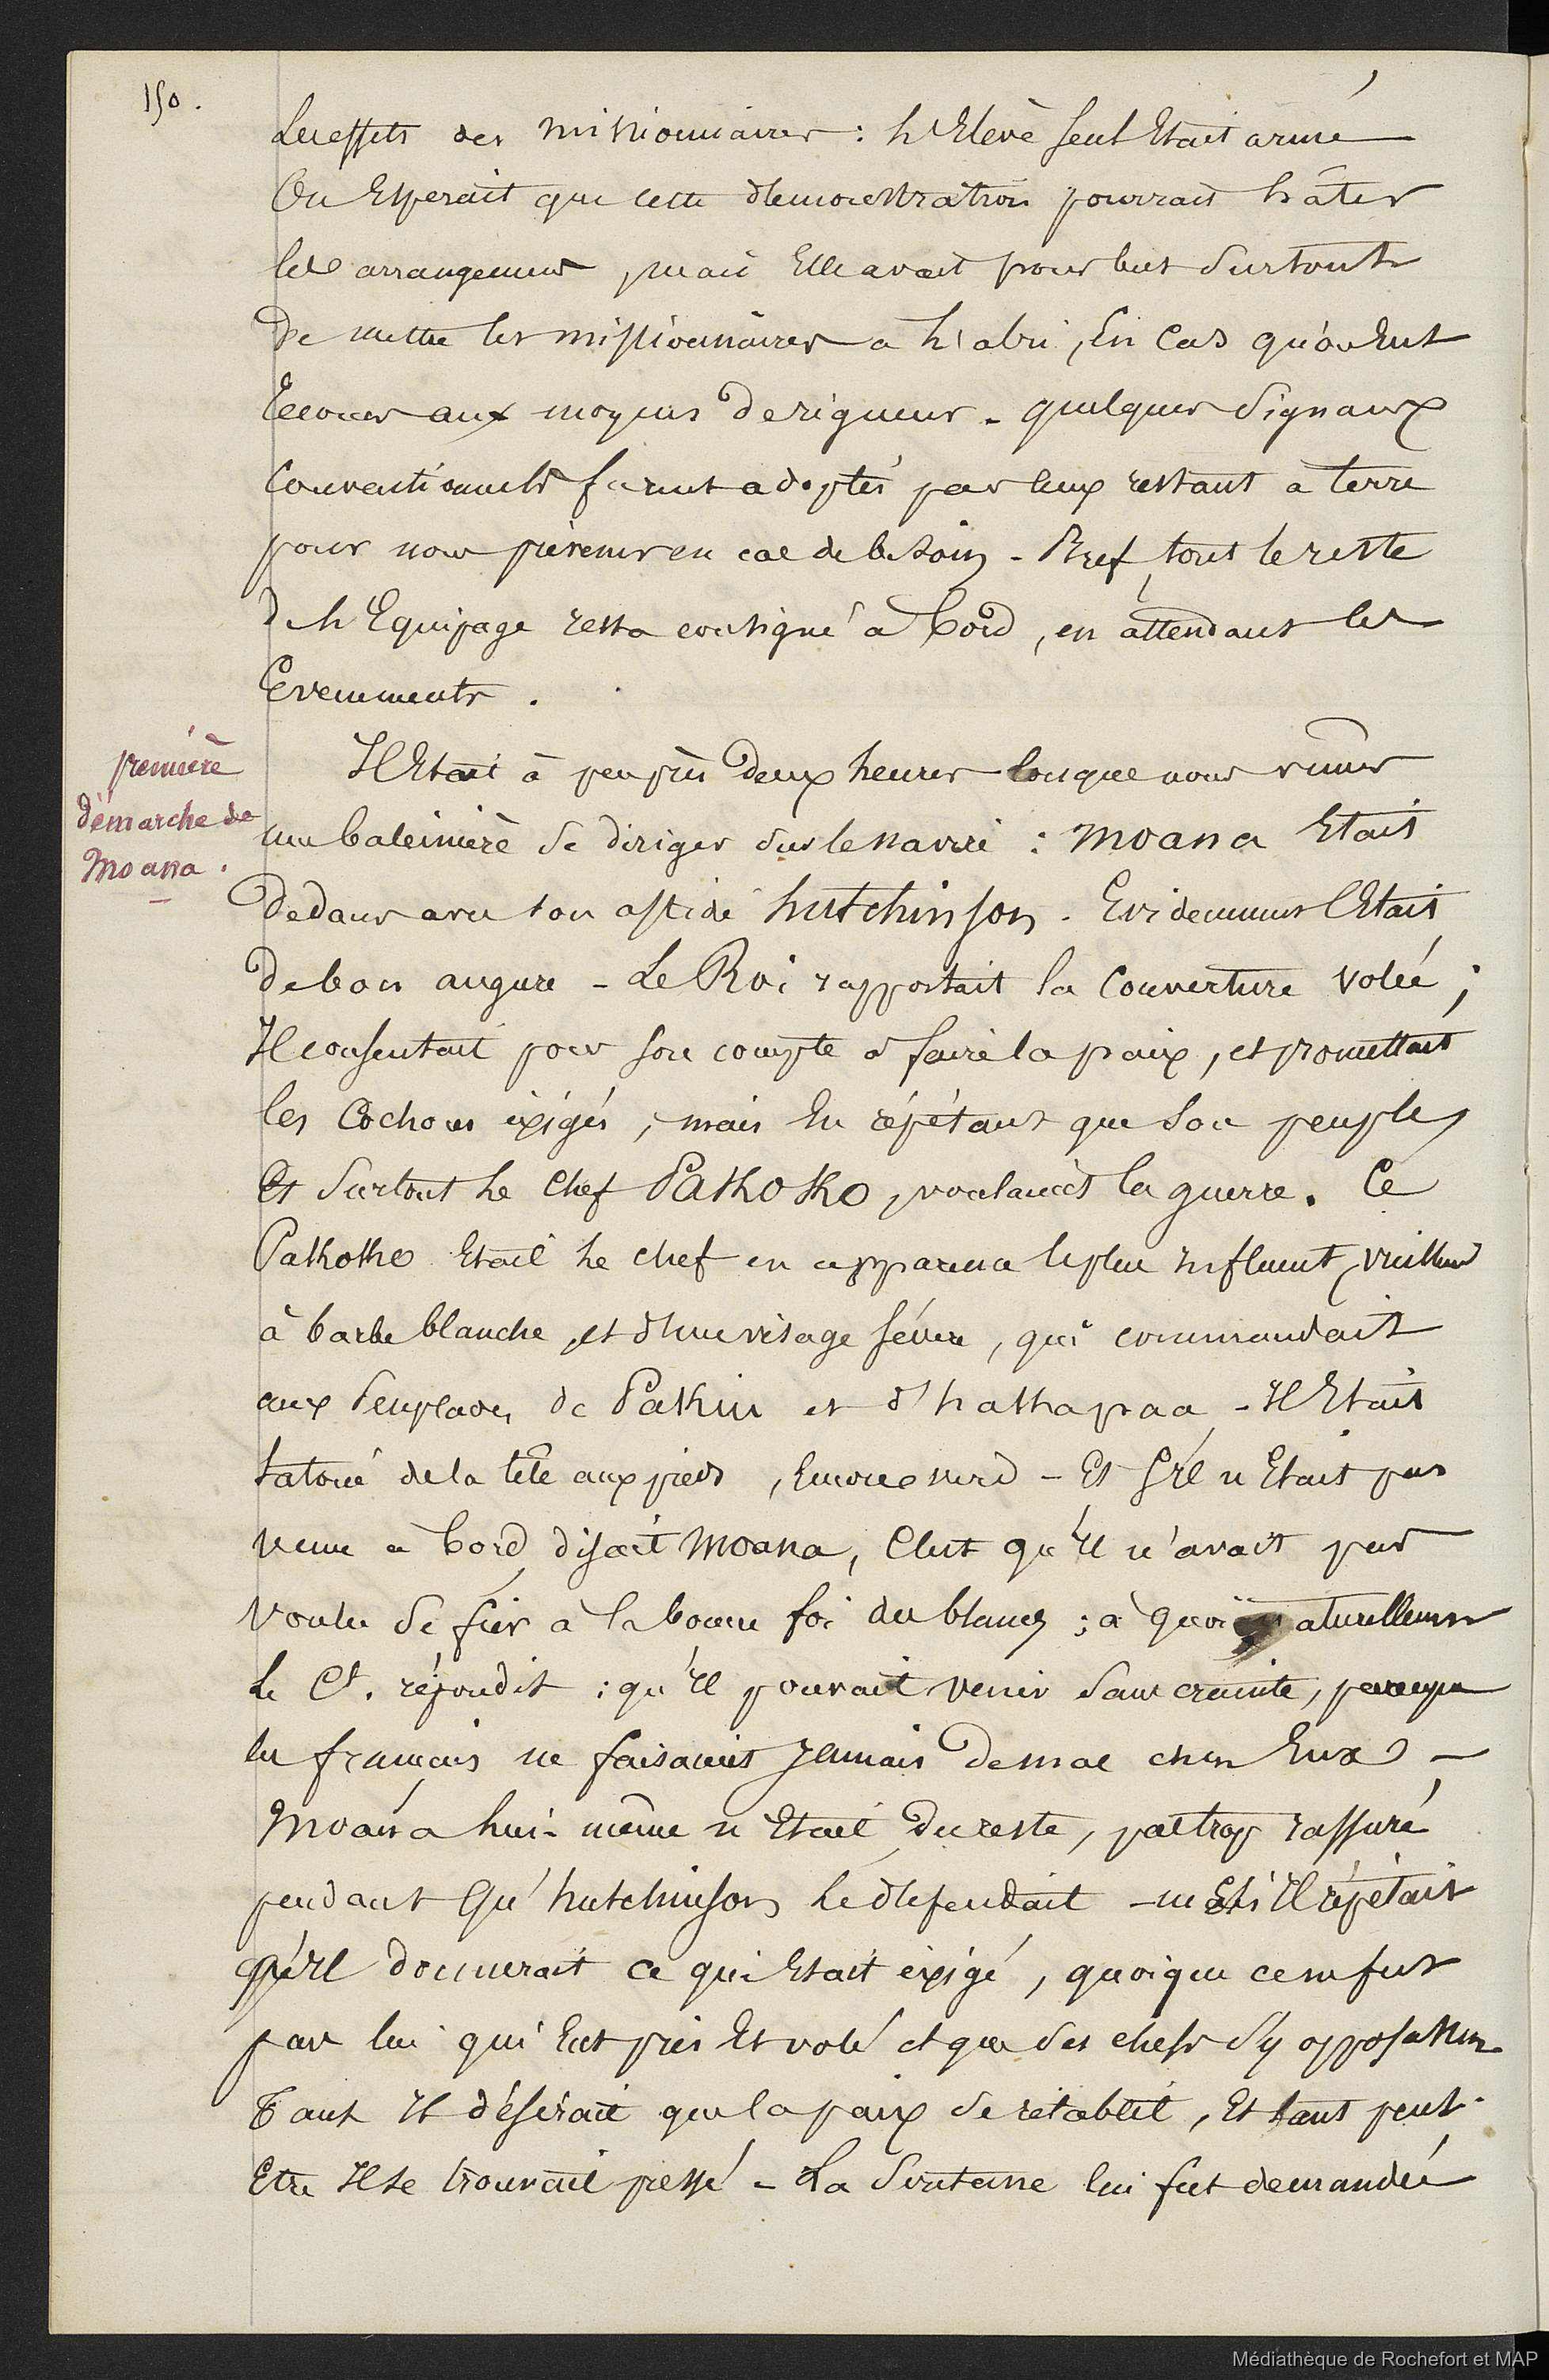 150.
Les effets des missionnaires : l'Elève seul Etait armé
On Esperait que cette démonstration pourrait hâter
les arrangemens, mais Elle avait pour but surtout
De mettre les missionnaires a l'abri, En Cas qu'on Eut
Recours aux moyens de rigueur - quelques Signaux
Conventionnels furent adoptés par ceux restant à terre
pour nous prévenir en cas de besoin - Bref, tout le reste
de l'Equipage resta consigné à bord, en attendant les
Evenements.
première
démarche de
Moana.
Il Etait à peu près Deux heures lorsque nous vimes
une baleinière se diriger sur le navire : Moana Etait
Dedans avec son affidé hutchinson. Evidemment C'Etait
De bon augure - Le Roi rapportait la Couverture volée ;
Il consentait pour son compte à faire la paix, et promettait
les Cochons exigés, mais En répétant que son peuple,
Et Surtout le Chef Patkokko, voulaient la guerre. Ce
Patkokko Etait le chef en apparence le plus influent, vieillard
à barbe blanche, et d'un visage sévère, qui commandait
aux Peuplades de Pakiu et d'hatkapaa - Il Etait
tatoué de la tête aux pieds, Encore - Et S'il n'Etait pas
venu a bord, disait Moana, C'est qu'Il n'avait pas
voulu Se fier à la bonne foi des blancs ; à quoi naturellement
Le Ct. répondit : qu'Il pouvait venir Sans crainte, parceque
les français ne faisaient Jamais De mal chez Eux -
Moana lui-même n'Etait, Du reste, pas trop rassuré
pendant Qu'hutchinson le défendait - mais Il répétait
qu'Il donnerait ce qui Etait exigé, quoique ce ne fut
pas lui qui Eut pris Et volé et que Ses chefs S'y opposassent
Tant Il désirait que la paix Se rétablit, Et tant peut-
Etre Il se trouvait pressé - La Sultane lui fut demandée
Médiathèque de Rochefort et MAP